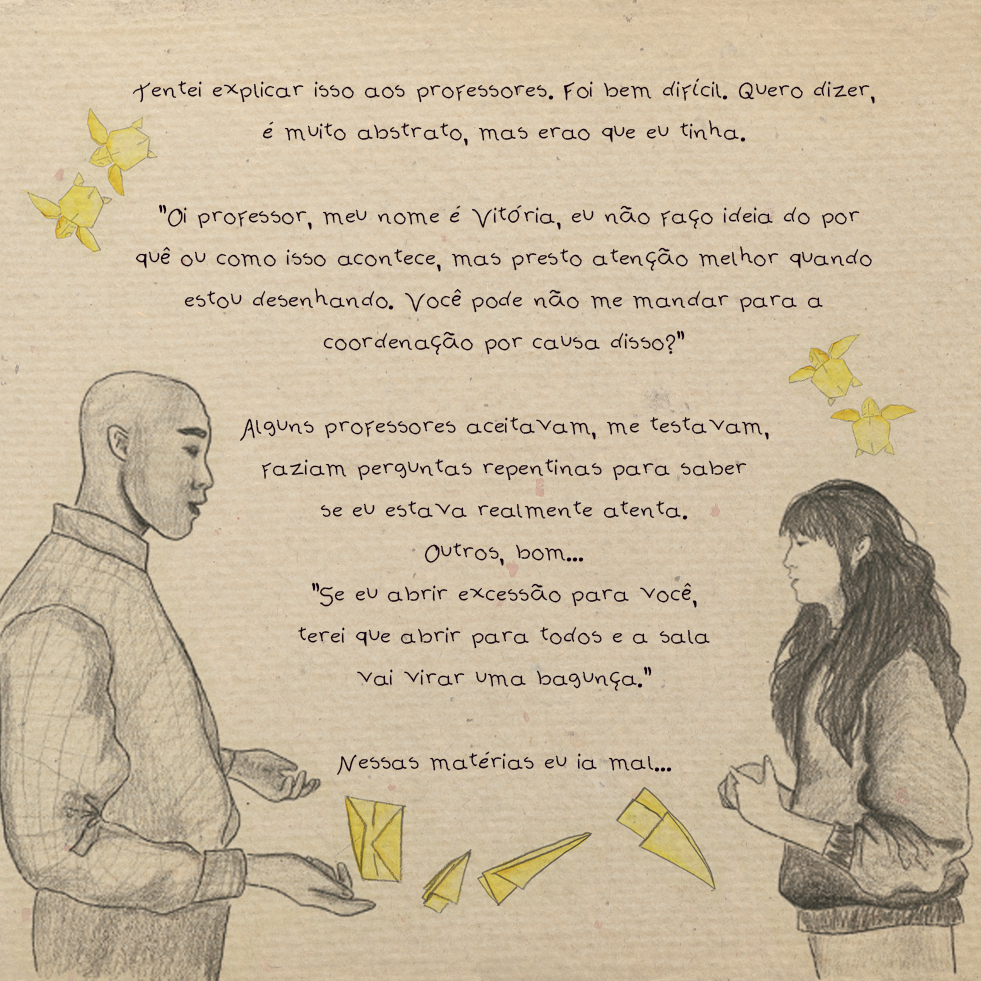 Tentei explicar isso aos professores. Foi bem difícil. Quero dizer,
é muito abstrato, mas erao que eu tinha.
"Oi professor, meu nome é Vitória, eu não faço ideia do por
quê ou como isso acontece, mas presto atenção melhor quando
estou desenhando. Você pode não me mandar para a
coordenação por causa disso?"
Alguns professores aceitavam, me testavam,
faziam perguntas repentinas para saber
se eu estava realmente atenta.
Outros, bom...
"Se eu abrir excessão para você,
terei que abrir para todos e a sala
vai virar uma bagunça."
Nessas matérias eu ia mal...